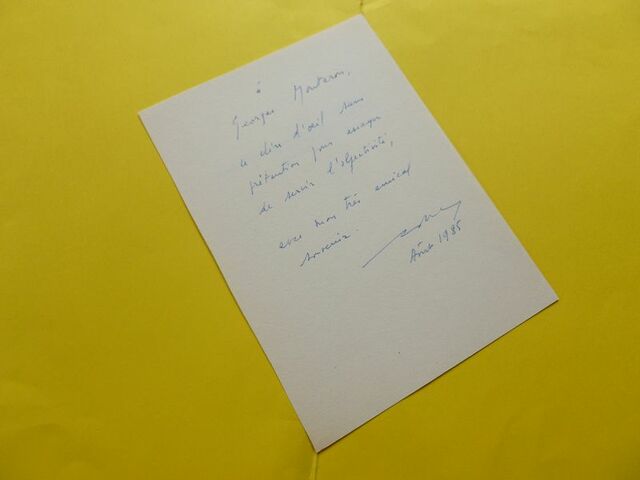 à
Georges Monteron,
ce clin d'œil sans
prétention pour essayer
de servir l'objectivité,
avec mon très amical
souvenir.
Août 1985